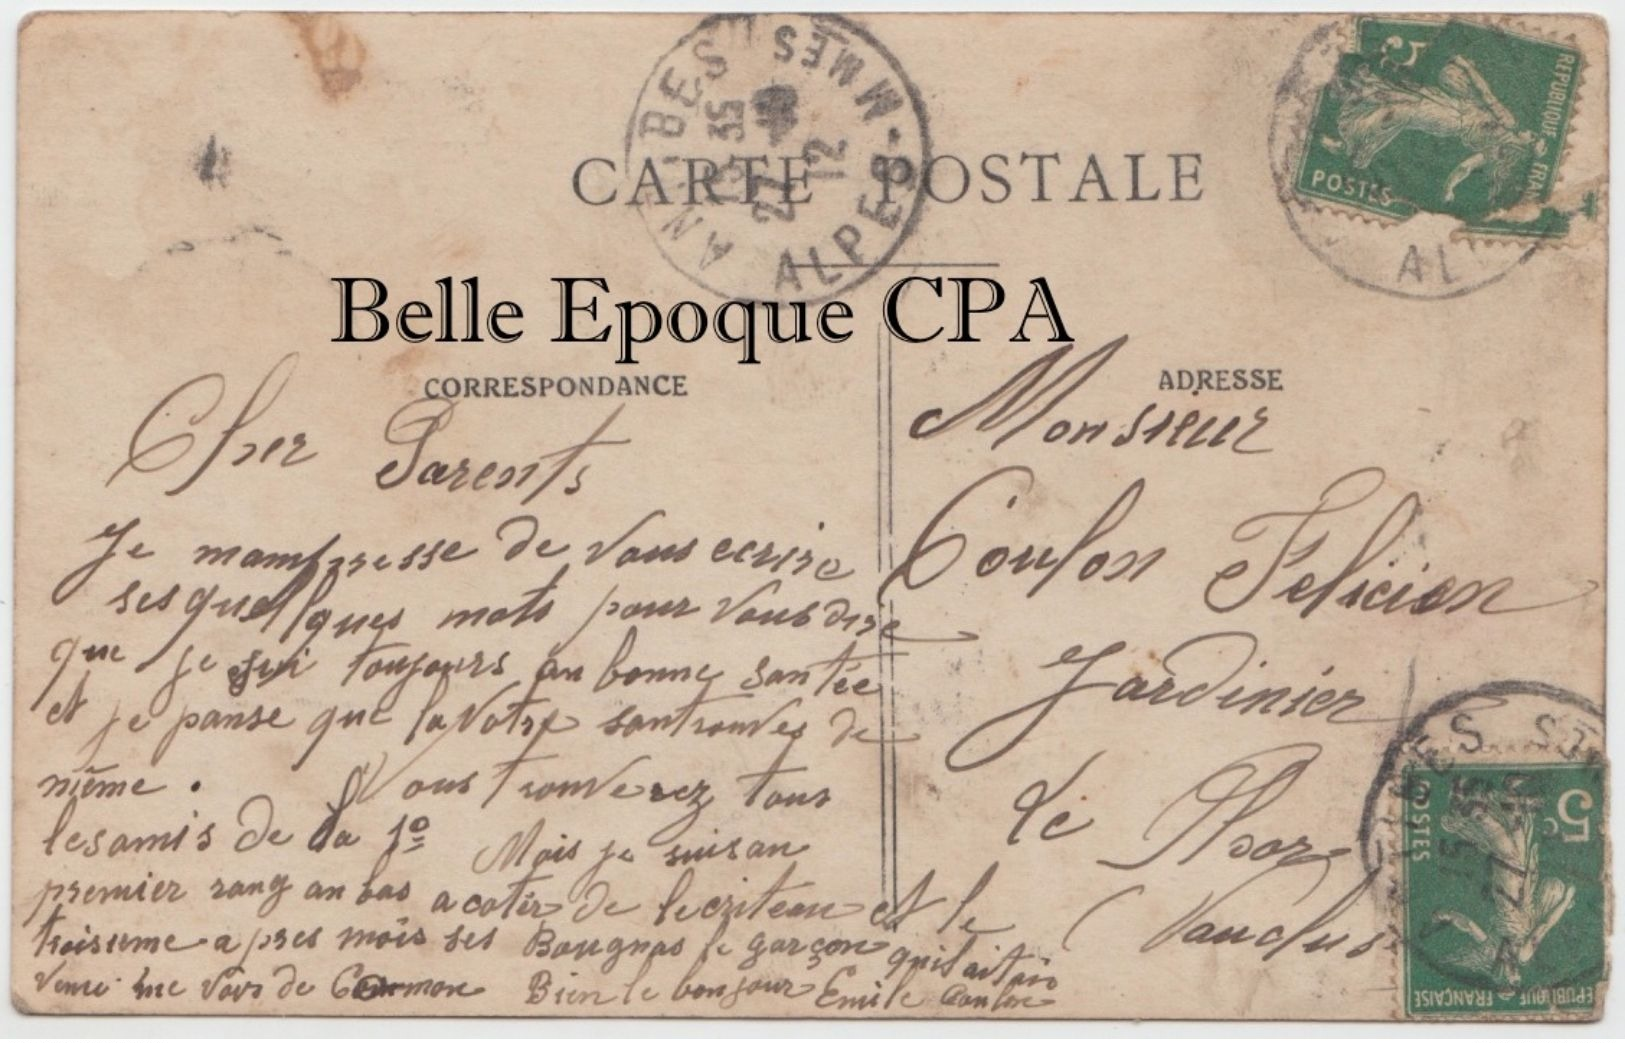 CARTE POSTALE
ANTIBES
15 35
27
12
ALPES-MMES
5c
REPUBLIQUE FRAN
POSTES
AL
Belle Epoque CPA
CORRESPONDANCE
ADRESSE
Cher Parents
Je mampresse de vous ecrire
ses quelques mots pour vous dire
que je sui toujours an bonne santée
et je panse que la votre santrouves de
même. Vous trouverez tous
les amis de la 1º Mais je suis an
premier rang an bas a cotir de lecriteau et le
troisieme apres mois ses Bougnas le garçon quil aitais
venu me voir de Caumon Bien le bonjour Emile Coulon
Monsieur
Coulon Felicien
Jardinier
Le Thor
Vaucluse
5c
POSTES
15 35
27
EPUBLIQUE FRANÇAISE